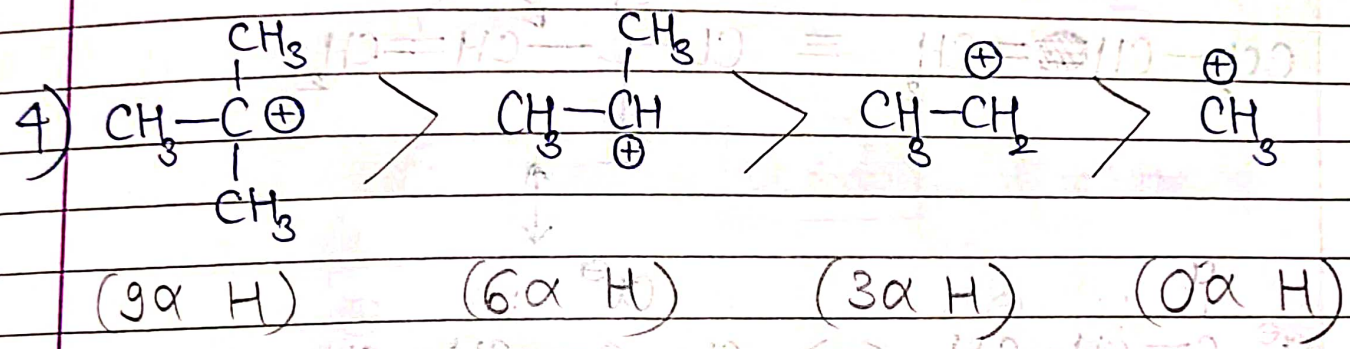 CH₃ CH₃
4) CH₃—C⊕ > CH₃—CH⊕ > CH₃—CH₂⊕ > CH₃⊕
CH₃
(9α H) (6α H) (3α H) (0α H)